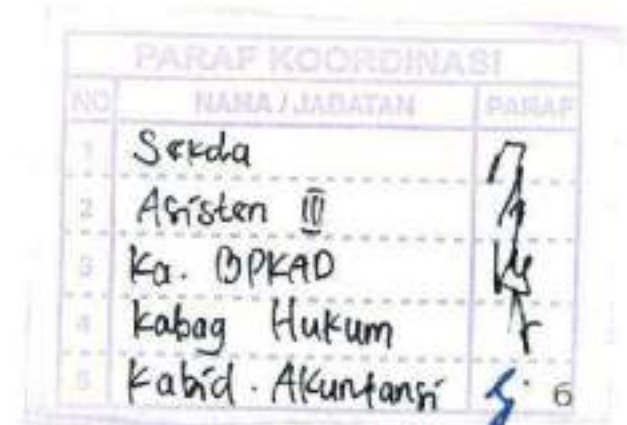 PARAF KOORDINASI
NO NAMA / JABATAN PARAF
1 Sekda
2 Asisten III
3 Ka. BPKAD
4 Kabag Hukum
5 Kabid. Akuntansi 6